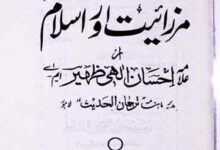 مرزائیت اور اسلام
از
علامہ احسان الٰہی ظہیر ایم-اے
ترجمان الحدیث لاہور